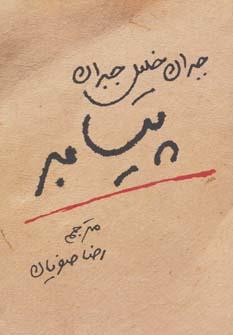 جبران خلیل جبران
پیامبر
مترجم
رضا صفویان